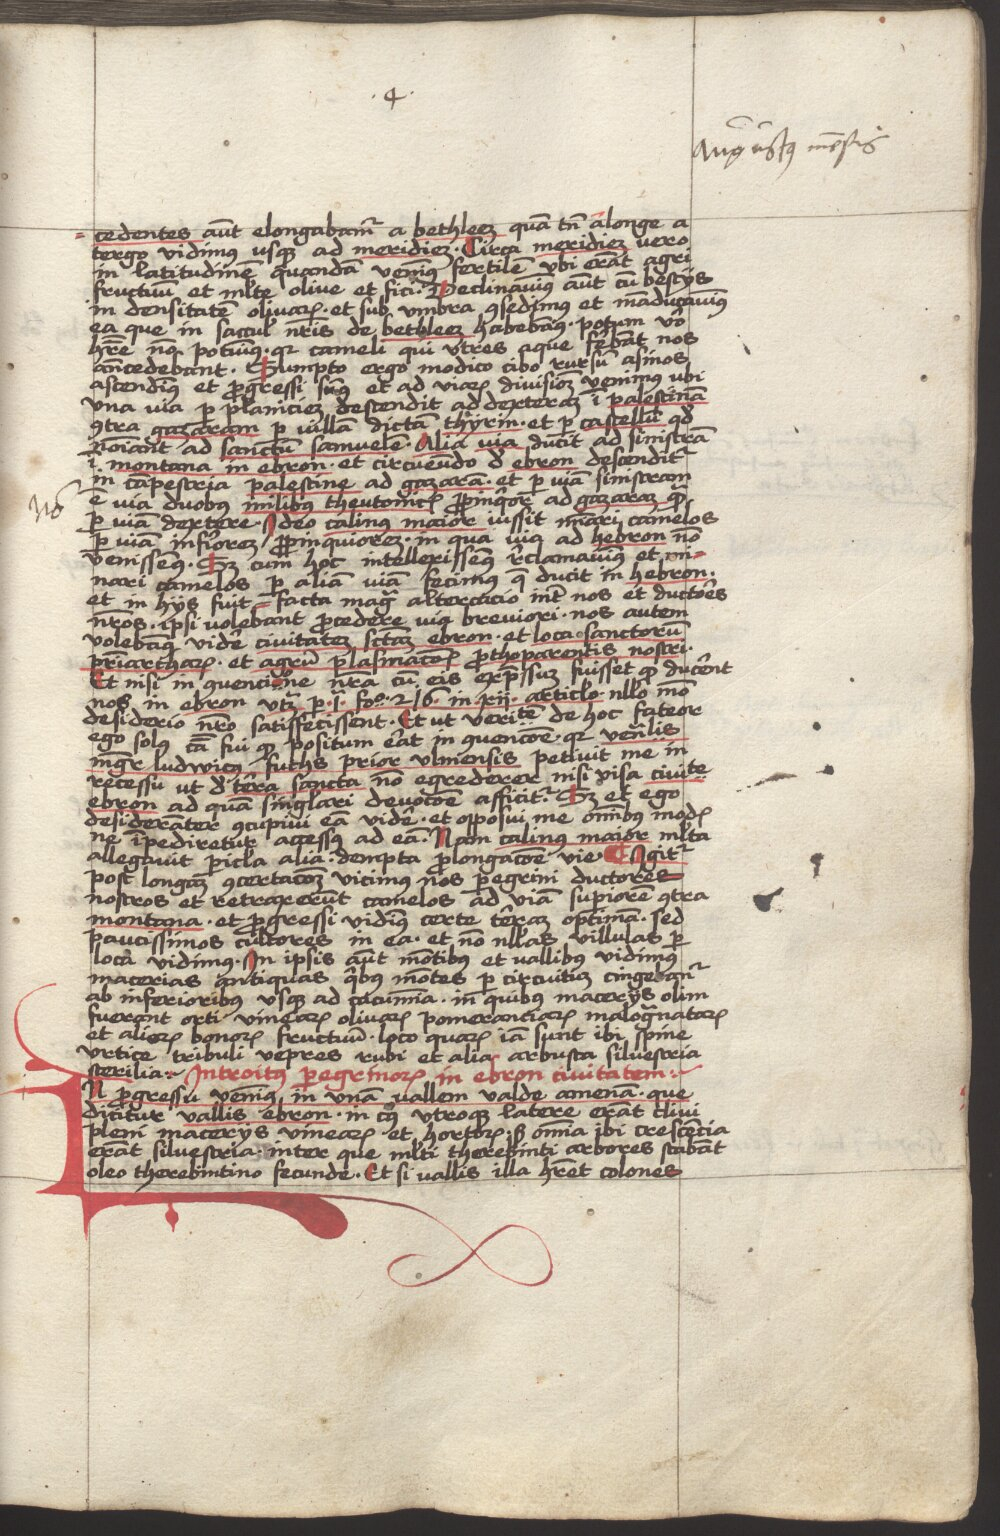 ·4·
Augustus mensis
cedentes aūt elongabamr̄ a bethleez quā tn̄ a longe a
tergo vidimus usqz ad meridiez · Circa meridiez vero
in latitudinē quandā venimꝰ fertilē vbi erāt agri
fructuū et mlte olive et fici · Declinavimꝰ aūt cū bestijs
in densitatē olivaꝝ · et sub umbra ꝯsedimꝰ et māducavimꝰ
ea que in saccul nr̄is de bethleez habebamꝰ · potum vō
hr̄e nō potuimꝰ · qꝛ cameli qui utres aque ferebāt nos
an̄cedebant · Sumpto ergo modico cibo rursū asinos
ascendimꝰ et ꝓgressi sumꝰ et ad viaꝝ divisioēz venimus ubi
una via ꝑ planiciez descendit ad dexteraz ī palestinā
ꝯtra gazaram ꝑ villā dictā thyrin · et ꝑ castellū qd̄
noīant ad sanctum samuelē · Alia via ducit ad sinistrā
ī montana in ebron · et circuēundo d̄ ebron descenditr̄
in cāpestria palestine ad gazarā · et ꝑ viā sinistram
ē via duobus milibus theutonicꝭ ꝓpinq̄or ad gazaraz qꝫ
No
ꝑ viā dextere · Ideo calinus maior iussit mīari camelos
ꝑ viā inferiorez ꝓpinquiorez · in qua viā ad hebron nō
venissemꝰ · Sz cum hoc intellexissemꝰ reclamavimꝰ et mi-
nari camelos ꝑ aliā viā fecimus q̄ ducit in hebron ·
et in hijs fuit facta maḡ altercacio int̄ nos et ductores
nr̄os · ipsi volebant ꝓcedere viā breviori · nos autem
volebamꝰ vidē civitatez sctāz ebron · et loca sanctorū
pr̄iarcharꝝ · et agrū plasmacōꝭ ꝓthoparentis nostri ·
Et nisi in ꝯuencione nr̄a cū eis exp̄ssuz fuisset qꝫ ducēnt
nos in ebron utꝫ ꝑ · j · fo · 216 · in xij · articlo nllo mō
desiderio nr̄o satisfecissent · Et ut veritē de hoc fateor
ego solꝰ cā fui qꝫ positum erāt in ꝯuencōe · qꝛ ven̄lis
mgr̄ ludwicꝰ fuchs prior ulmensis petivit me in
recessu ut d̄ tēra sancta nō egrederer nisi visa civite
ebron ad quā singlari devocōe afficitr̄ · Sz et ego
desideranter ꝯcupivi eā videre · et opposui me omnibꝰ modꝭ
ne īpediretur accessꝰ ad eā · Nam calinus maior mlta
allegavit pericla alia · dempta ꝓlongacōe vie · Igitr̄
post longāz ꝯcertacōz vicimus nos peregrini ductores
nostros et retraxerūt camelos ad viā supiorē ꝯtra
montana · et ꝓgressi vidimꝰ certe tēraz optimā · sed
paucissimos cultores in ea · et nō nllas villulas ꝑ
loca vidimus · In ipsis aūt mōtibus et vallibus vidimus
macerias antiquas q̄bus mōtes ꝑ circuituz cingebanr̄
ab inferioribus usqz ad cacumīa · in quibus macerijs olim
fuerant orti vineaꝝ olivaꝝ pomeranciaꝝ malogranataꝝ
et alioꝝ bonoꝝ fructuū · loco quaꝝ iā sunt ibi spine
urtice tribuli vepres rubi et alia arbusta silvestria
sterilia · Introitus peregrinoꝝ in ebron civitatem ·
IN ꝓgressu venimꝰ in unā vallem valde amenā · que
dicitur vallis ebron · in cꝰ utroqz latere erāt clivi
pleni macerijs vineaꝝ et hortoꝝ · sꝫ omīa ibi crescēcia
erāt silvestria · inter que mlti therebinti arbores stabāt
oleo therebintino fecunde · Et si vallis illa hr̄et colones